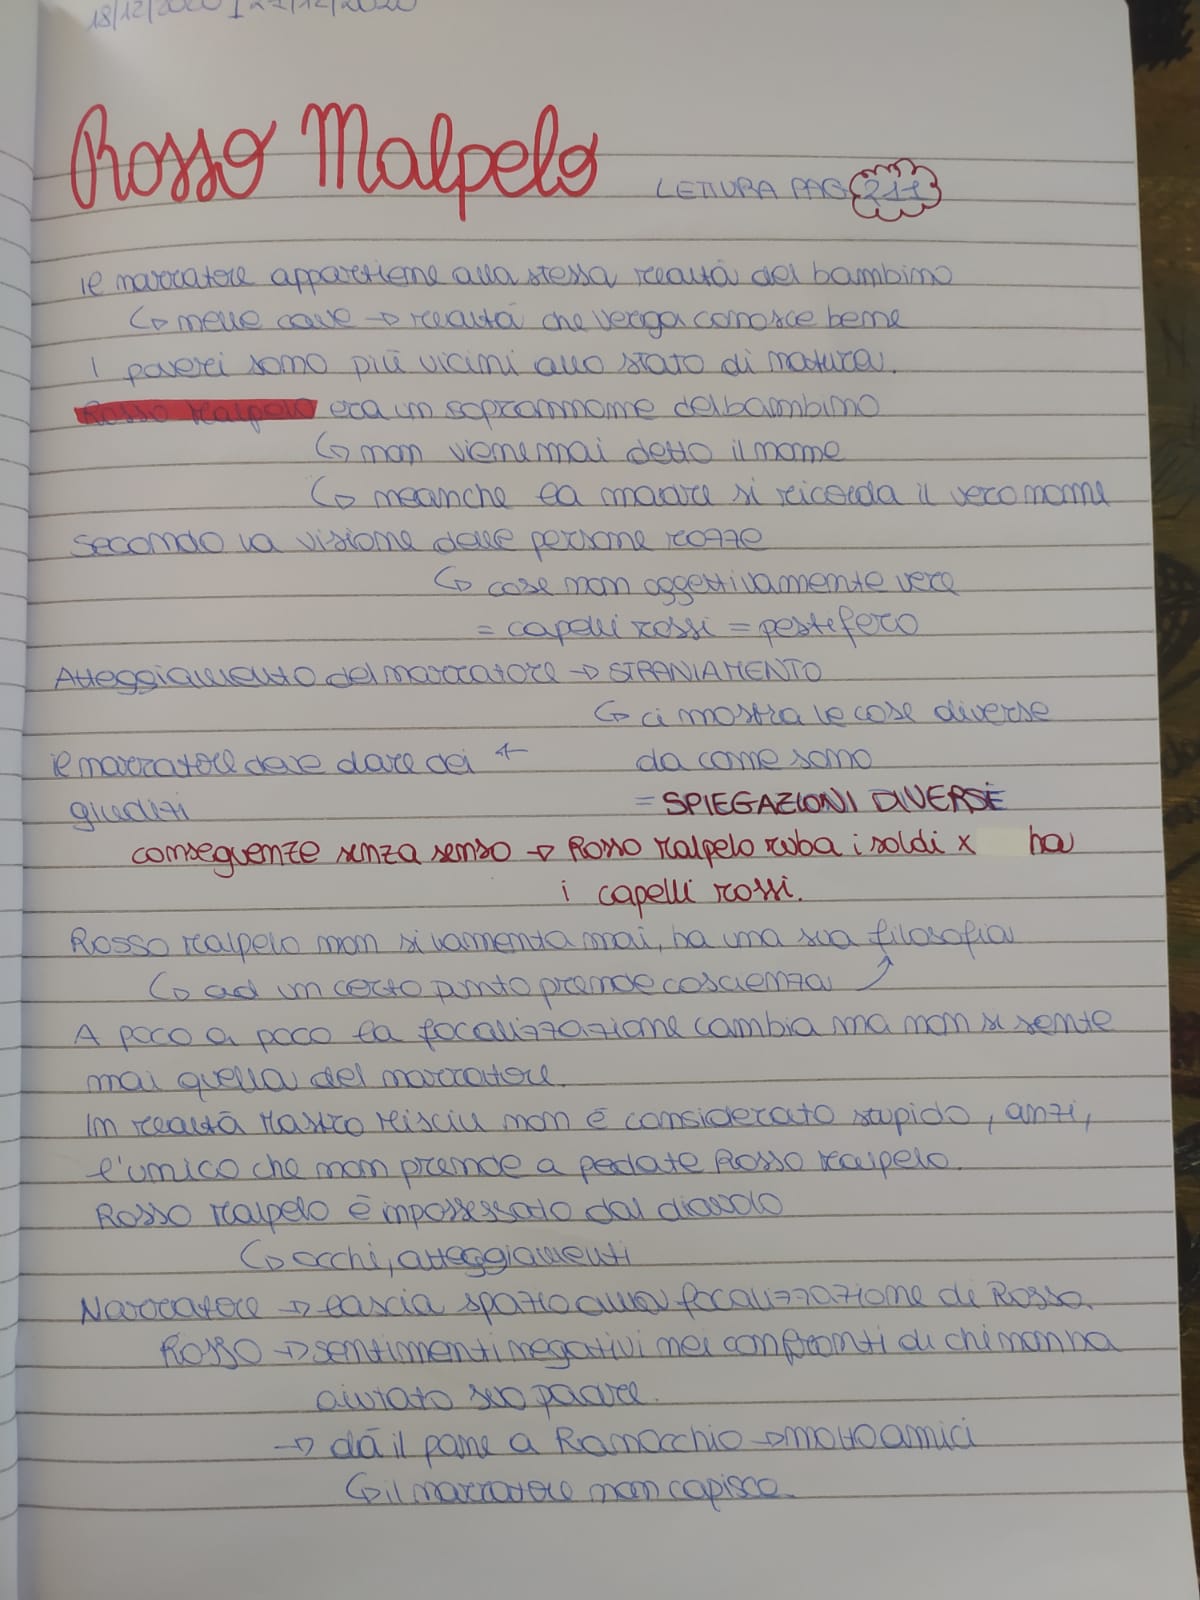 18/12/2020
Rosso Malpelo
LETTURA PAG 211
il narratore appartiene alla stessa realtà del bambino
↳ nelle cave → realtà che verga conosce bene
I poveri sono più vicini allo stato di natura.
Rosso Malpelo era un soprannome del bambino
↳ non viene mai detto il nome
↳ neanche la madre si ricorda il vero nome
secondo la visione delle persone rozze
↳ cose non oggettivamente vere
= capelli rossi = pestifero
Atteggiamento del narratore → STRANIAMENTO
↳ ci mostra le cose diverse
il narratore deve dare dei ← da come sono
giudizi = SPIEGAZIONI DIVERSE
conseguenze senza senso → Rosso Malpelo ruba i soldi x ha
i capelli rossi.
Rosso Malpelo non si lamenta mai, ha una sua filosofia
↳ ad un certo punto prende coscienza
A poco a poco la focalizzazione cambia ma non si sente
mai quella del narratore.
In realtà Mastro Misciu non è considerato stupido, anzi,
l'unico che non prende a pedate Rosso Malpelo.
Rosso Malpelo è impossessato dal diavolo
↳ occhi, atteggiamenti
Narratore → lascia spazio alla focalizzazione di Rosso.
Rosso → sentimenti negativi nei confronti di chi non ha
aiutato suo padre.
→ dà il pane a Ranocchio → molto amici
↳ il narratore non capisce.